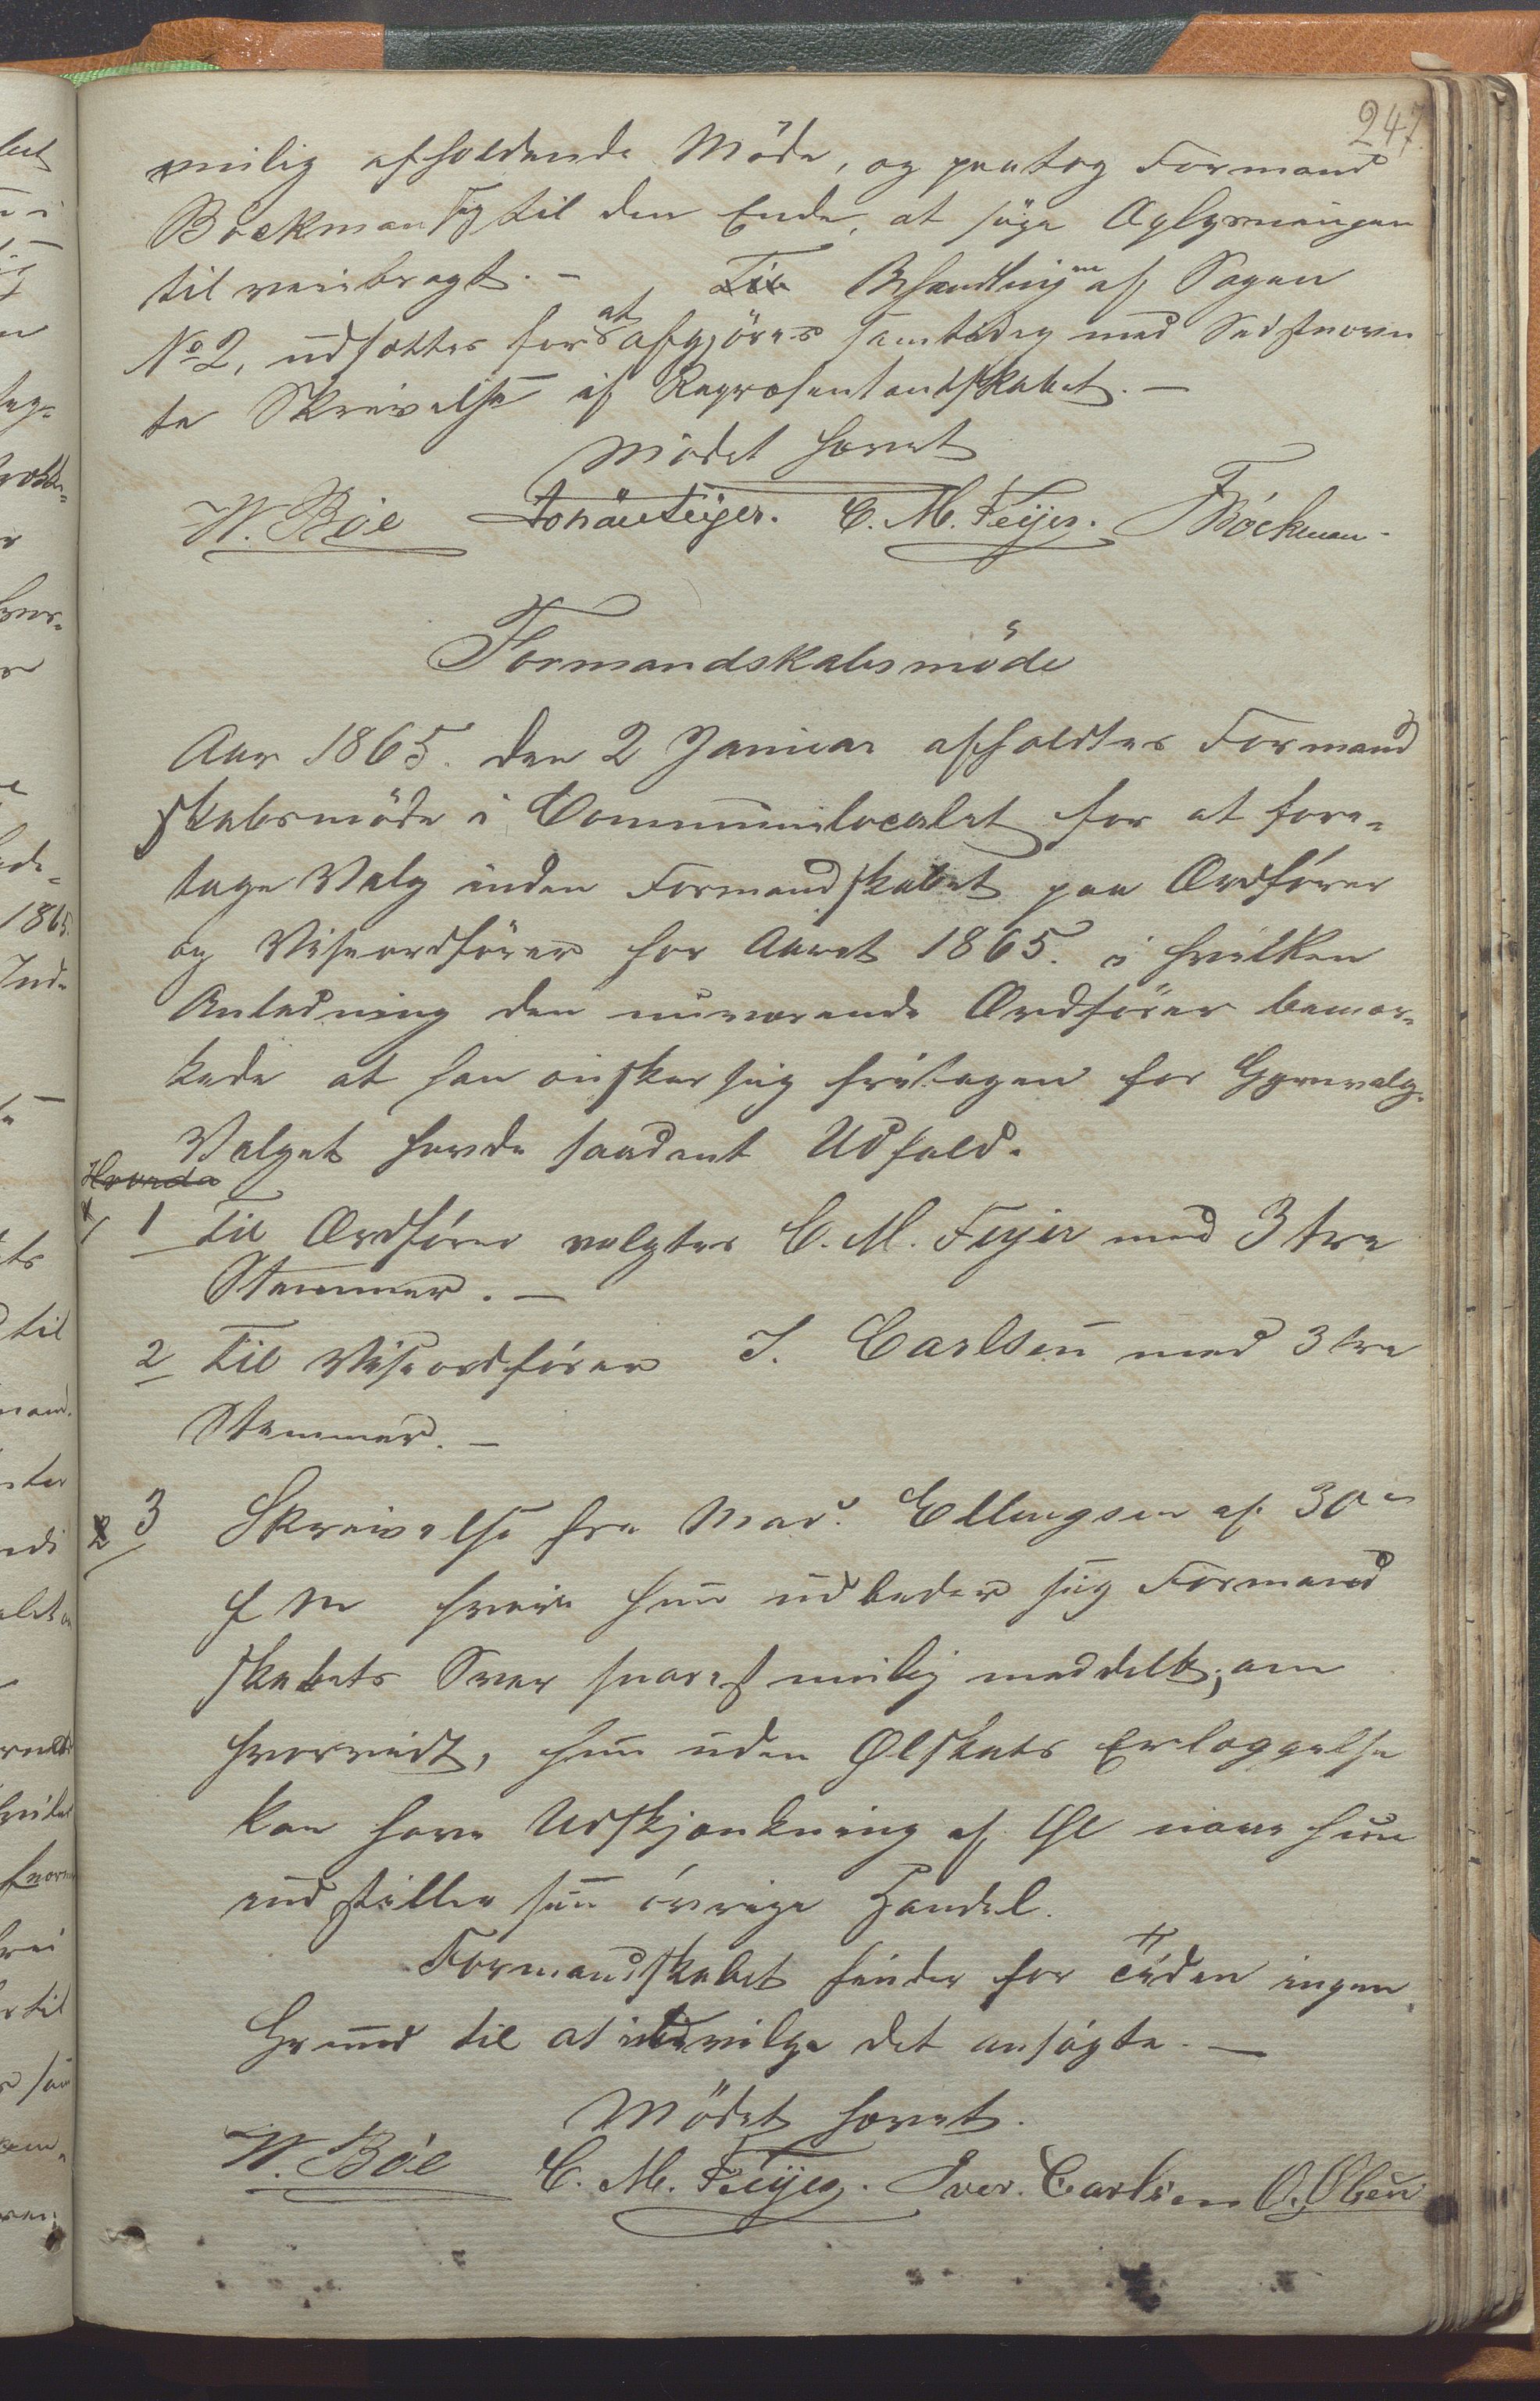 247
mulig afholdende Möde, og paatog Formand
Böckman sig til den Ende, at søge Oplysningen
til veiebragt. – Behandlingen af Sagen
No 2, udsættes for at afgjöres samtidig med Sidstnevn
te Skrivelse af Repræsentantskabet. –
Mödet hævet
W. Böe C. M. Feÿer. F Böckman.
Formandskabsmöde
Aar 1865. den 2 Januar afholdtes Formand
skabsmöde i Communelocalet for at fore-
tage Valg inden Formandskabet paa Ordförer
og Viseordförer for Aaret 1865. i hvilken
Anledning den nuværende Ordförer bemær-
kede at han önsker sig fritagen for Gjenvalg.
Valget havde saadant Udfald.
1 Til Ordförer valgtes C. M. Feyer med 3 tre
Stemmer. –
2 Til Viseordförer I. Carlsen med 3 tre
Stemmer. –
3 Skrivelse fra Mad. Ellingsen af 30
f M hvori hun udbeder sig Formand
skabets Svar snarest mulig meddelt, om
hvorvidt, hun uden Ølskats Erlæggelse
kan have Udskjænkning af Øl naar hun
indstiller sin övrige Handel.
Formandskabet finder for Tiden ingen
Grund til at indvilge det ansögte. –
Mödet hævet.
W. Böe C. M. Feÿer. Iver. Carlsen O. Olsen